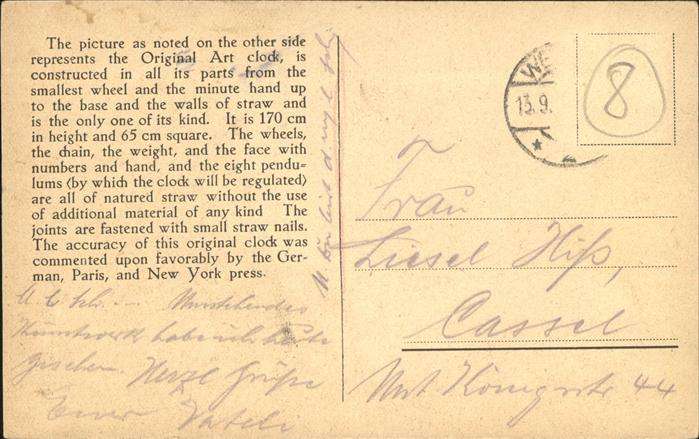 The picture as noted on the other side
represents the Original Art clock, is
constructed in all its parts from the
smallest wheel and the minute hand up
to the base and the walls of straw and
is the only one of its kind. It is 170 cm
in height and 65 cm square. The wheels,
the chain, the weight, and the face with
numbers and hand, and the eight pendu-
lums (by which the clock will be regulated)
are all of natured straw without the use
of additional material of any kind The
joints are fastened with small straw nails.
The accuracy of this original clock was
commented upon favorably by the Ger-
man, Paris, and New York press.
Umstehendes
Kunstwerk habe ich heute
gesehen. Herzl Grüße
Euer Vater
13.9.
8
Frau
Liesel Hiß,
Cassel
Unt Königsstr 44